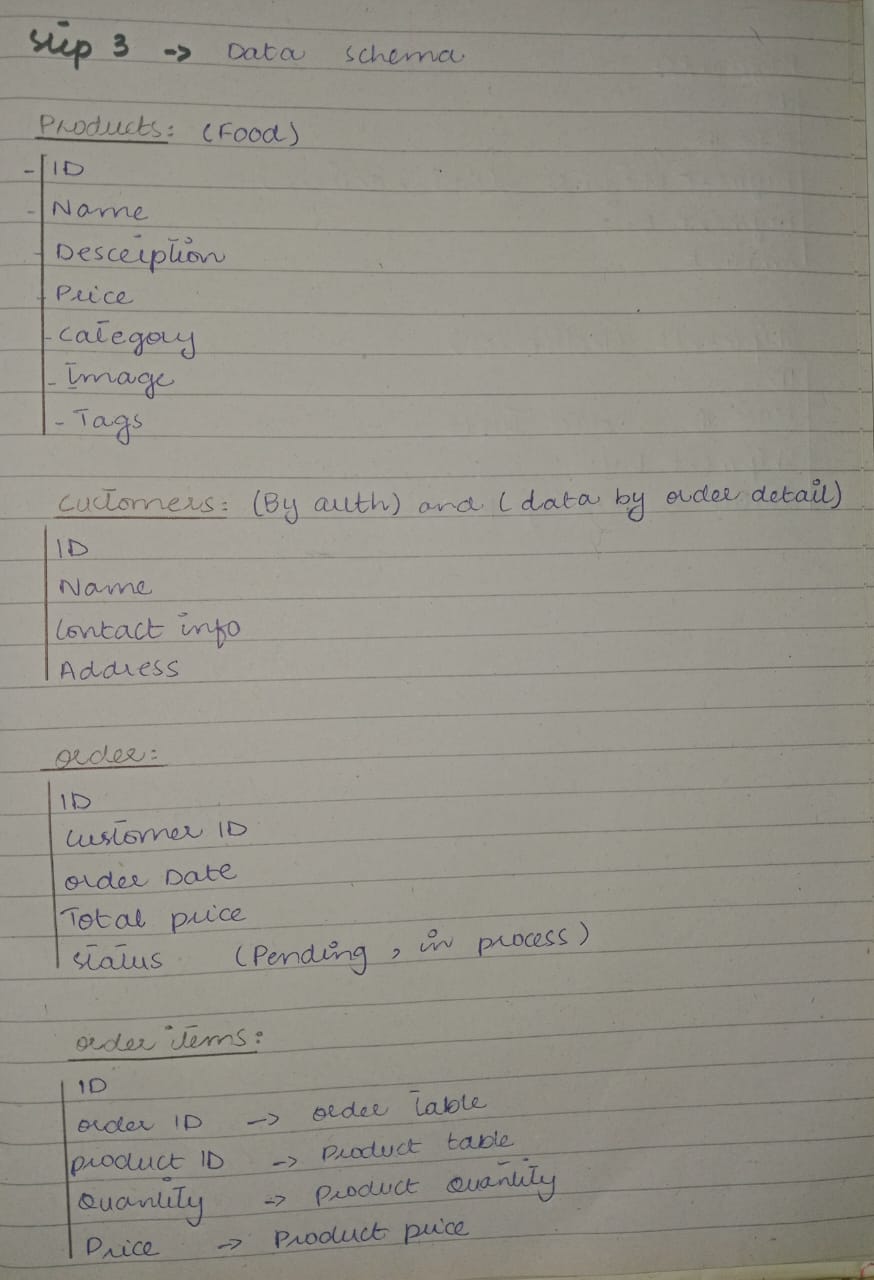 Step 3 -> Data schema
Products: (Food)
- ID
- Name
- Description
- Price
- Category
- Image
- Tags
Customers: (By auth) and (data by order detail)
ID
Name
Contact info
Address
order:
ID
Customer ID
order Date
Total price
status (Pending, in process)
order items:
ID
order ID -> order table
product ID -> Product table
Quantity -> Product Quantity
Price -> Product price